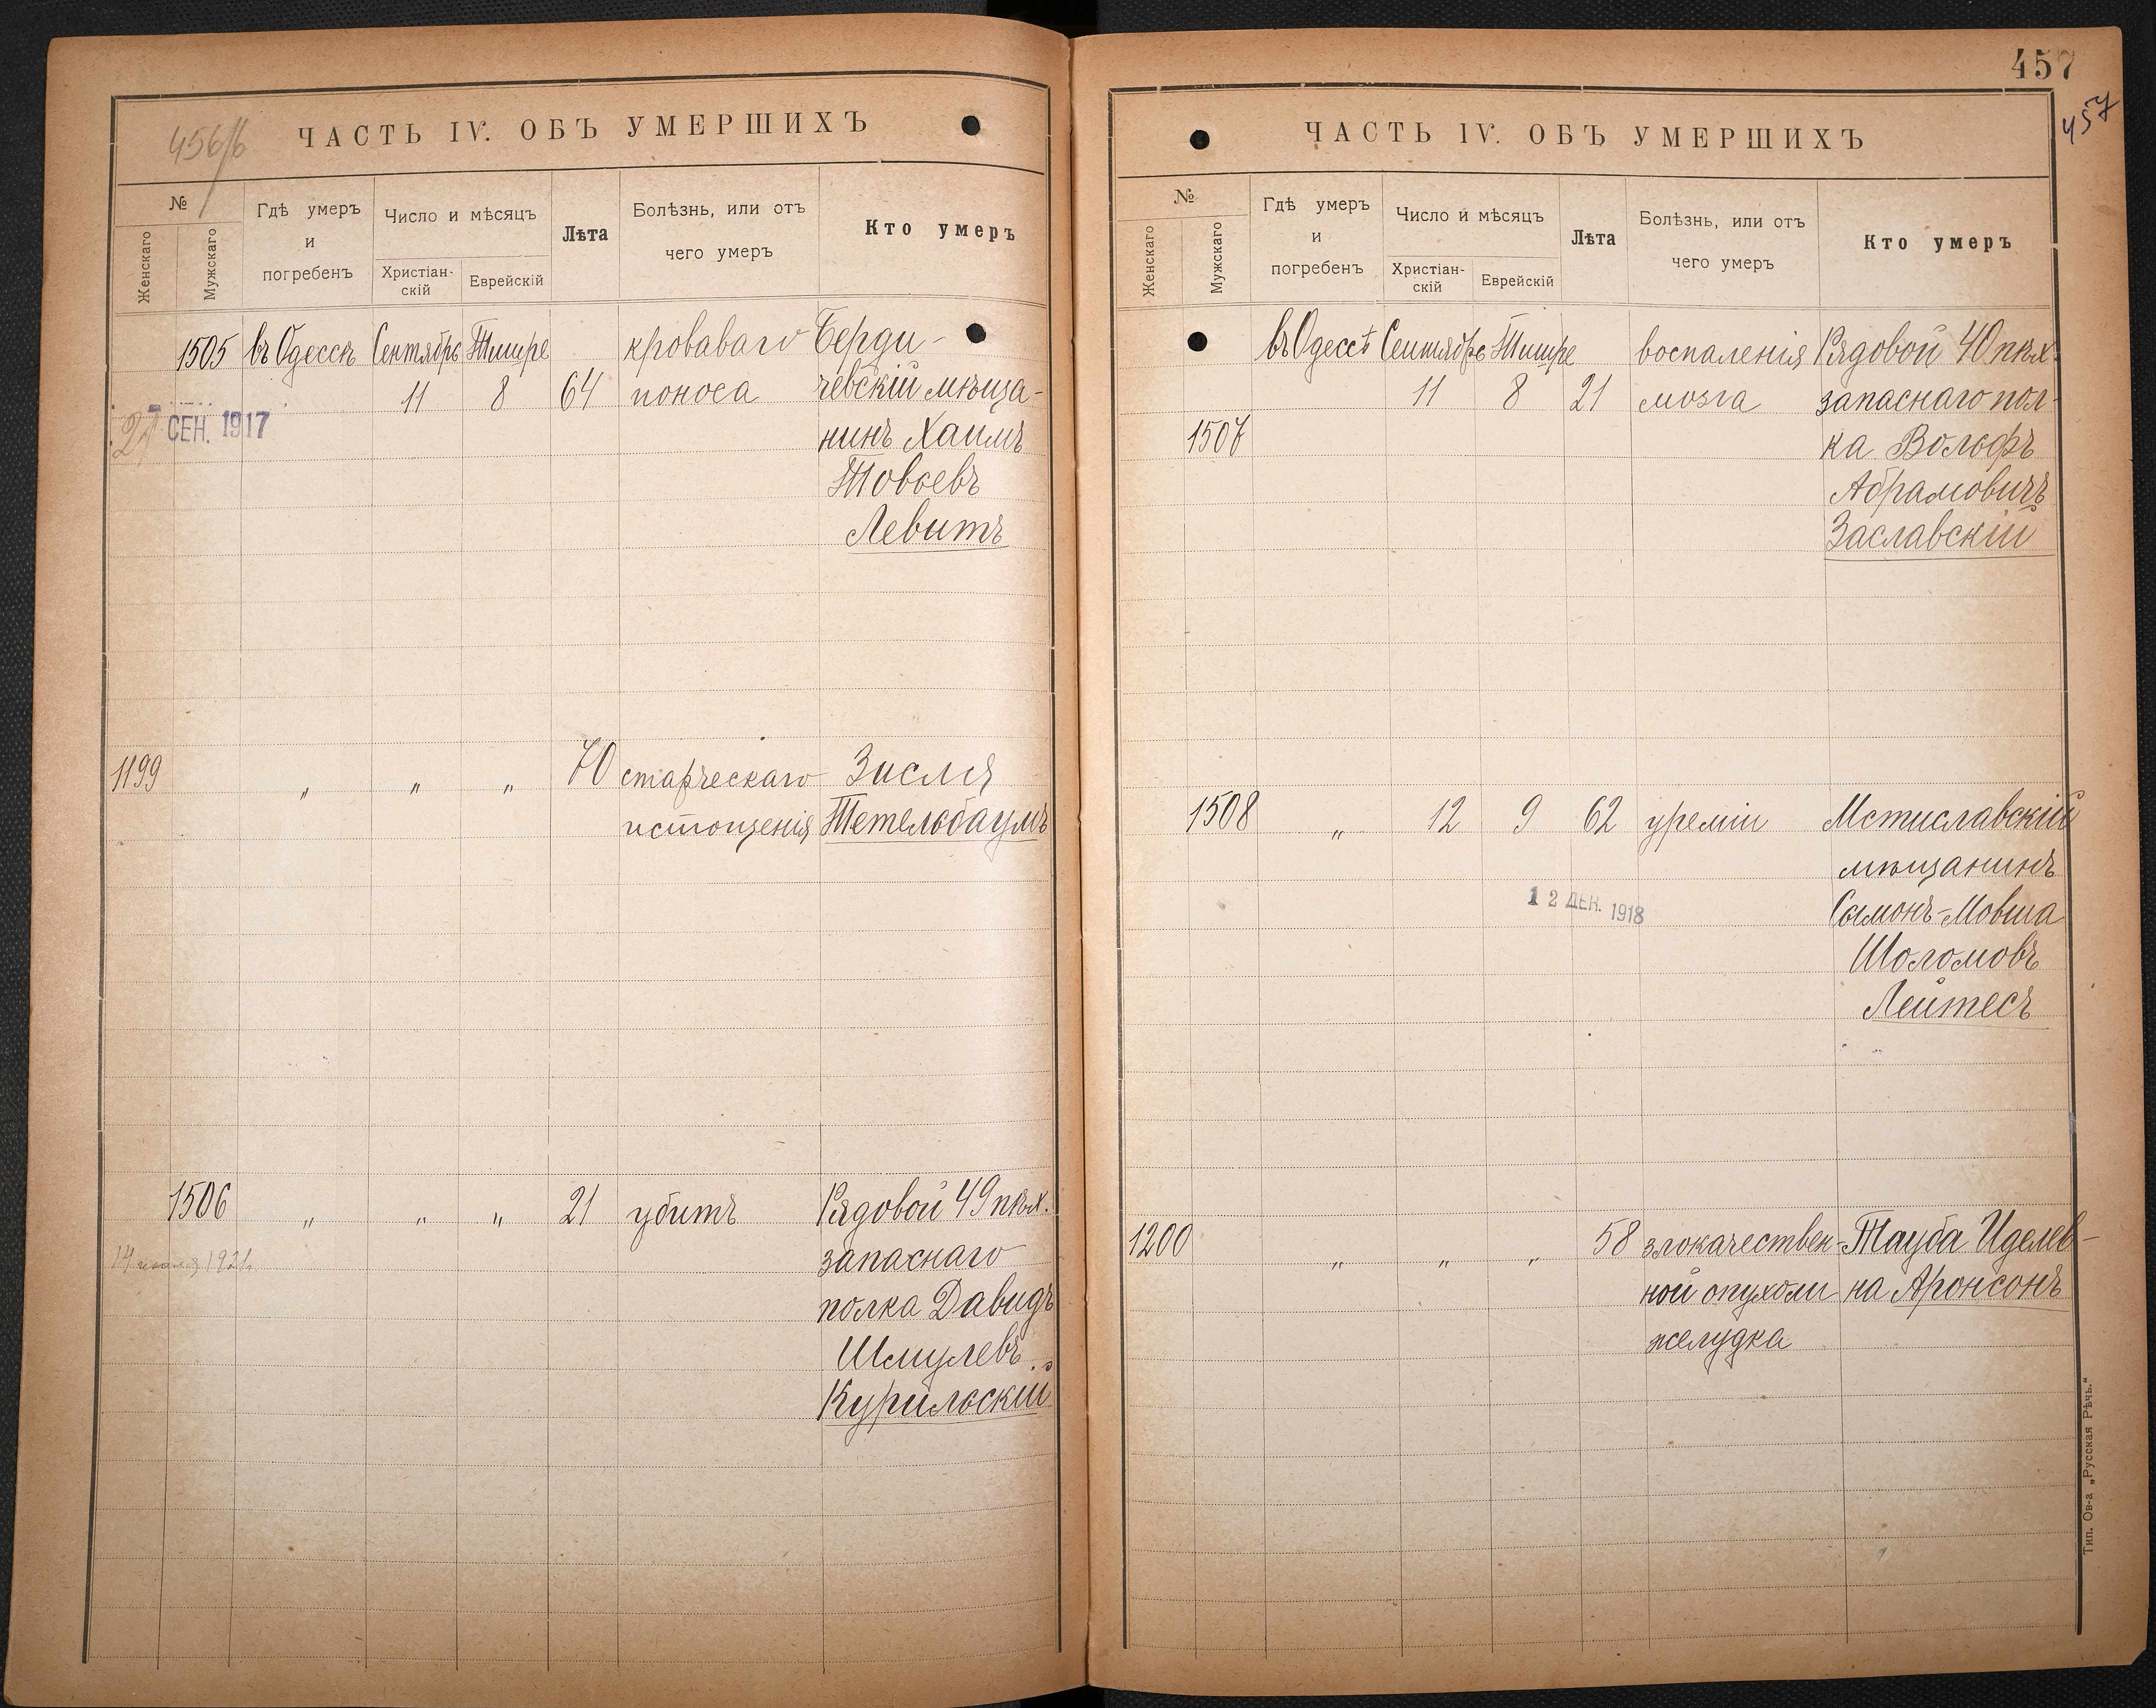 456/б
ЧАСТЬ IV. ОБЪ УМЕРШИХЪ
№
Женскаго
Мужскаго
Гдѣ умеръ
и
погребенъ
Число и мѣсяцъ
Христіан-
скій
Еврейскій
Лѣта
Болѣзнь, или отъ
чего умеръ
Кто умеръ
1505 въ Одессѣ Сентябрь Тишре кроваваго Берди-
11 8 64 поноса чевскій мѣща-
СЕН. 1917 нинъ Хаимъ
Товьевъ
Левитъ
1199 " " " 70 старческаго Зисля
истощенія Тетельбаумъ
1506 " " " 21 убитъ Рядовой 49 пѣх.
1921 запаснаго
полка Давидъ
Шмулевъ
Курильскій
457
457
ЧАСТЬ IV. ОБЪ УМЕРШИХЪ
№
Женскаго
Мужскаго
Гдѣ умеръ
и
погребенъ
Число и мѣсяцъ
Христіан-
скій
Еврейскій
Лѣта
Болѣзнь, или отъ
чего умеръ
Кто умеръ
въ Одессѣ Сентябрь Тишре воспаленія Рядовой 40 пѣх.
11 8 21 мозга запаснаго пол-
1507 ка Вольфъ
Абрамовичъ
Заславскій
1508 " 12 9 62 уреміи Мстиславскій
мѣщанинъ
12 ДЕК. 1918 Симонъ-Мовша
Шоломовъ
Лейтесъ
1200 " " " 58 злокачествен- Тауба Иделев-
ной опухоли на Аронсонъ
желудка
Тип. Ов-а „Русская Рѣчь."